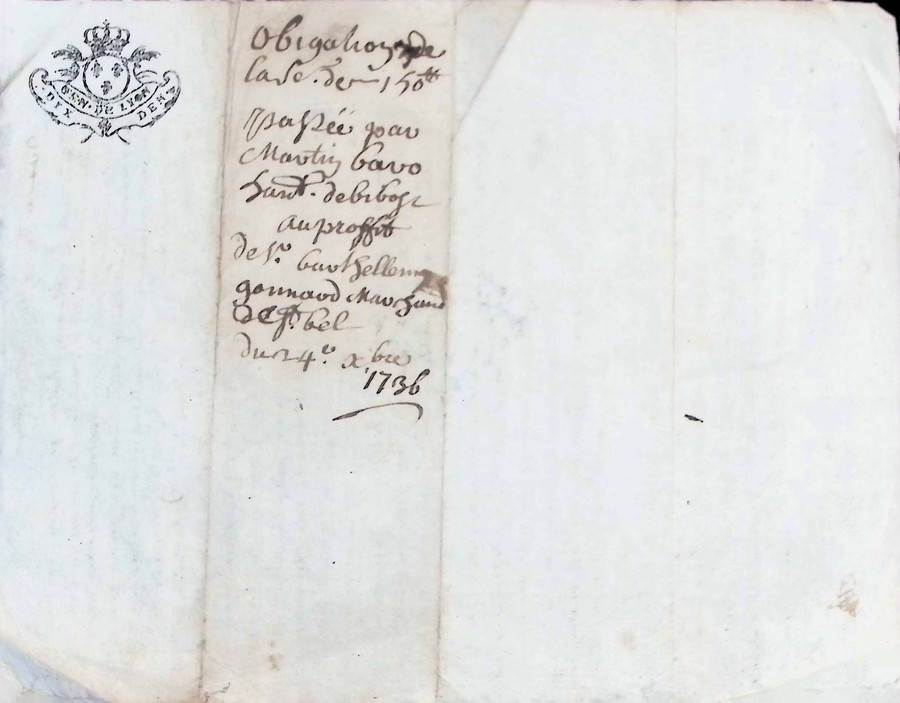 GEN. DE LYON
DIX DEN.
Obigation de
la Se. de 150tt
passée par
Martin baro
hant. de bibost
au proffit
de Sr. barthellemy
gonnard Marchand
de St. bel
du 24e. xbre
1736